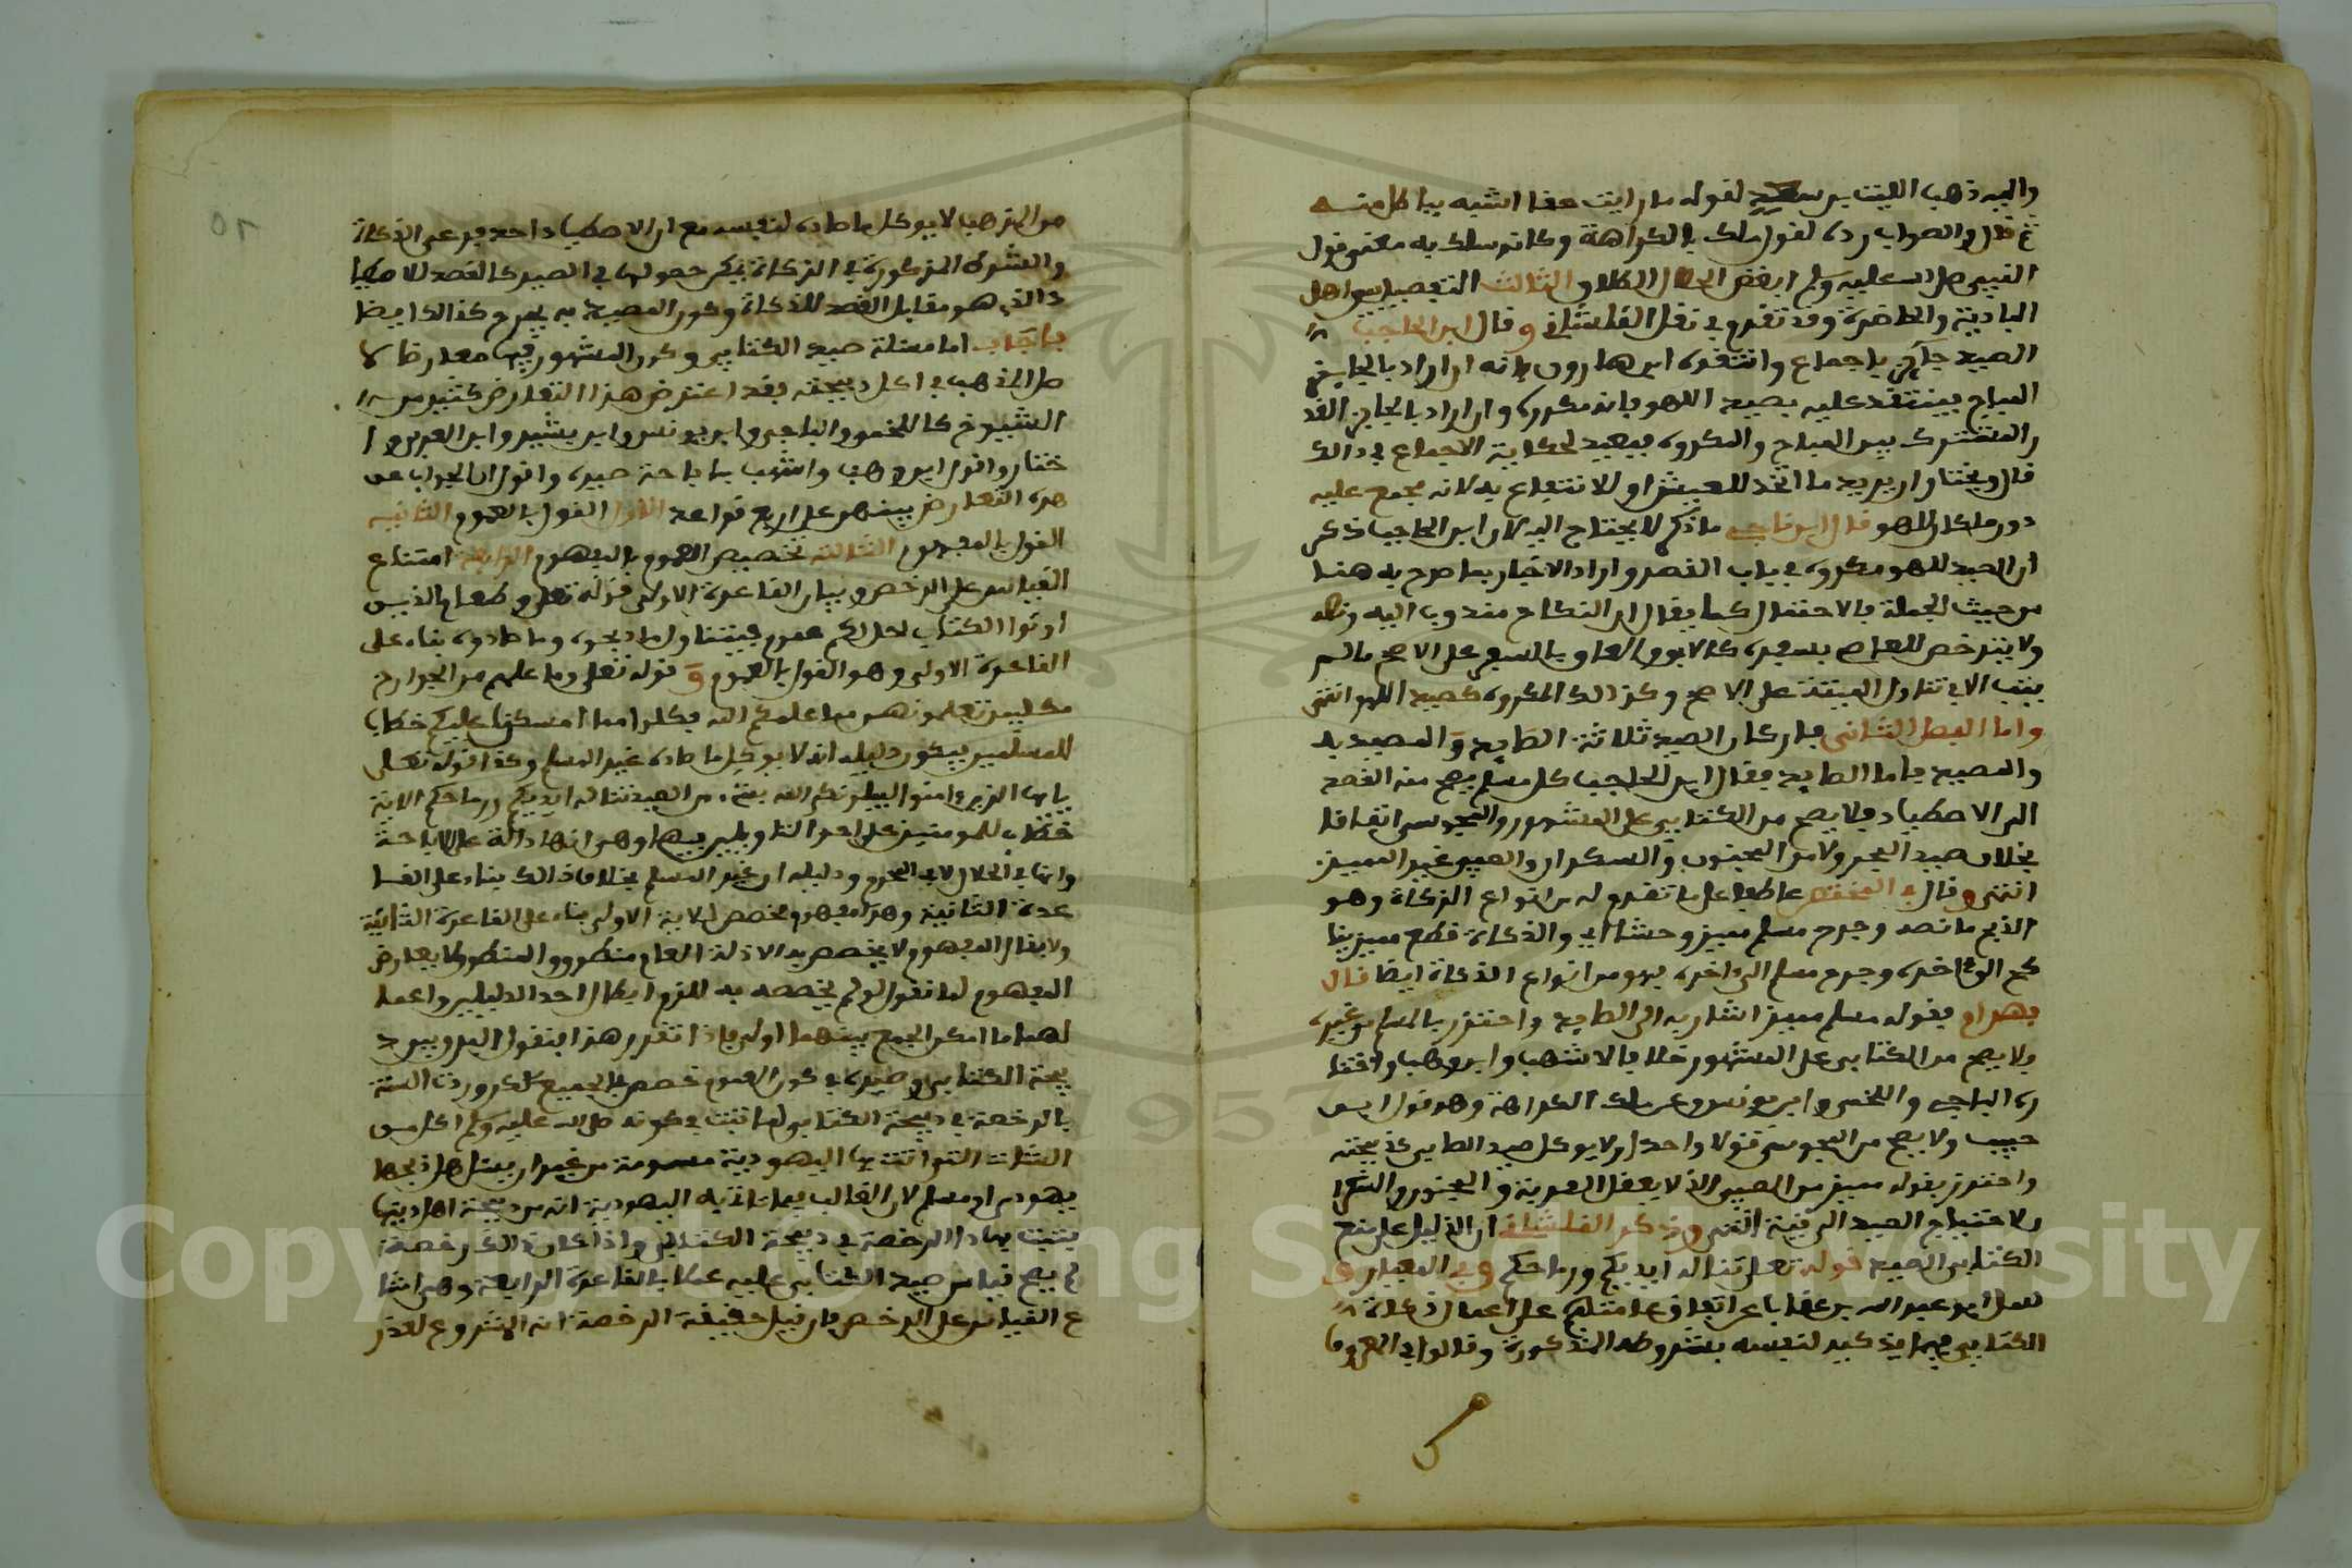 واليه ذهب الليث بن سعيد لقوله ما رايت حقا اشبه بباطل منه
قال والصواب رده لقول ملك بالكراهة وكانه سلك به معنى قول
النبي صلى الله عليه وسلم ابغض الحلال الطلاق الثالث التفصيل بين اهل
البادية والحاضرة وقد تقدم في نقل القلشاني وقال ابن الحاجب
الصيد جائز باجماع وانتقده ابن هارون بانه ان اراد بالجايز
المباح فينتقد عليه بصيد اللهو فانه مكروه وان اراد بالجايز القد
ر المشترك بين المباح والمكروه فبعيد لحكاية الاجماع في ذالك
قال ويختار ان يريد ما اتخذ للعيش او للانتفاع به لانه مجمع عليه
دون ما كان للهو قال ابن ناجي ما ذكره لا يحتاج اليه لان ابن الحاجب ذكر
ان الصيد للهو مكروه في باب القصر واراد الاخبار بما صرح به هنا
من حيث الجملة بالاحتمال كما يقال ان النكاح مندوب اليه
ولا يترخص للعاصي بسفره كالابق والعاق بالسفر على الاصح ما لم
يتب الا في تناول الميتة على الاصح وكذالك المكروه كصيد اللهو انتهى
واما الفصل الثاني فاركان الصيد ثلاثة الصايد والمصيد به
والمصيد فاما الصايد فقال ابن الحاجب كل مسلم يصح منه القصد
الى الاصطياد فلا يصح من الكتابي على المشهور والمجوسي اتفاقا
بخلاف صيد البحر ولا من المجنون والسكران والصبي غير المميز
انتهى وقال في المختصر عاطفا على ما تقدم له من انواع الزكاة وهو
الذبح ما نصه وجرح مسلم مميز وحشيا الى والذكاة قطع مميز ينا
كح الى اخره وجرح مسلم الى اخره فهو من انواع الذكاة ايضا قال
بهرام فقوله مسلم مميز اشار به الى الصايد واحترز بالمسلم من غيره
ولا يصح من الكتابي على المشهور خلافا لاشهب وابن وهب واختا
ره الباجي واللخمي وابن يونس وعن ملك الكراهة وهو قول ابن
حبيب ولا يصح من المجوسي قولا واحدا ولا يوكل صيد الصابي كذبيحته
واحترز بقوله مميز من الصبي الذي لا يعقل القربة والمجنون والسكران
لاحتياج الصيد الى نية انتهى وذكر القلشاني ان الدليل على منع
الكتابي الصيد قوله تعلى تناله ايديكم ورماحكم وفي المعيار
سئل ابو عبد الله بن عقاب عن اتفاق علمائنا على اعمال ذكاة
الكتابي فيما يذكيه لنفسه بشروطه المذكورة وقالوا في المعروف
من المذهب لا يوكل ما صاده لنفسه مع ان الاصطياد احد فرعي الذكاة
والشروط المذكورة في الزكاة يمكن حصولها في الصيد كالقصد للاصطيا
د الذي هو مقابل القصد للذكاة وكون المصيد به يجرح كذالك ايضا
فاجاب اما مسئلة صيد الكتابي وكون المشهور فيها معارضا لا
صل المذهب في اكل ذبيحته فقد اعترض هذا التعارض كثير من
الشيوخ كاللخمي والباجي وابن يونس وابن بشير وابن العربي وا
ختاروا قول ابن وهب واشهب باباحة صيده واقول ان الجواب عن
هذه التعارض ينبني على اربع قواعد الاولى القول بالعموم الثانية
القول بالمفهوم الثالثة تخصيص العموم بالمفهوم الرابعة امتناع
القياس على الرخص وبيان القاعدة الاولى قوله تعلى وطعام الذين
اوتوا الكتاب حل لكم عموم فيتناول ما ذبحوه وما صادوه بناء على
القاعدة الاولى وهو القول بالعموم وقوله تعلى وما علمتم من الجوارح
مكلبين تعلمونهن مما علمكم الله فكلوا مما امسكن عليكم خطاب
للمسلمين فيكون دليله انه لا يوكل ما صاده غير المسلم وكذا قوله تعلى
يايها الذين ءامنوا ليبلونكم الله بشيء من الصيد تناله ايديكم ورماحكم الاية
خطاب للمومنين على احد التاويلين فيها وهو انها دالة على الاباحة
وانها في الحلال لا في المحرم ودليله ان غير المسلم بخلاف ذالك بناء على القا
عدة الثانية وهذا مفهوم مخصص للاية الاولى بناء على القاعدة الثالثة
ولا يقال المفهوم لا يخصص به الادلة العام منطوق والمنطوق لا يعارض
المفهوم لما نقول لو لم يخصصه به للزم ابطال احد الدليلين واعما
لهما ما امكن الجمع بينهما اولى فاذا تقرر هذا فنقول الفرق بين ذ
بيحة الكتابي وصيده في كون العموم خصص في الجميع لكن وردت السنة
بالرخصة في ذبيحة الكتابي لما ثبت في كونه صلى الله عليه وسلم اكل من
الشاة التي اتته بها اليهودية مسمومة من غير ان يسئل هل ذبحها
يهودي او مسلم لان الغالب فيما تاتي به اليهودية انه من ذبيحة اهل دينها
فثبت بهاذا الرخصة في ذبيحة الكتابي واذا كان ذالك رخصة
لم يصح قياس صيد الكتابي عليه عملا بالقاعدة الرابعة وهي امتنا
ع القياس على الرخص فان قيل حقيقة الرخصة انه المشروع لعذر